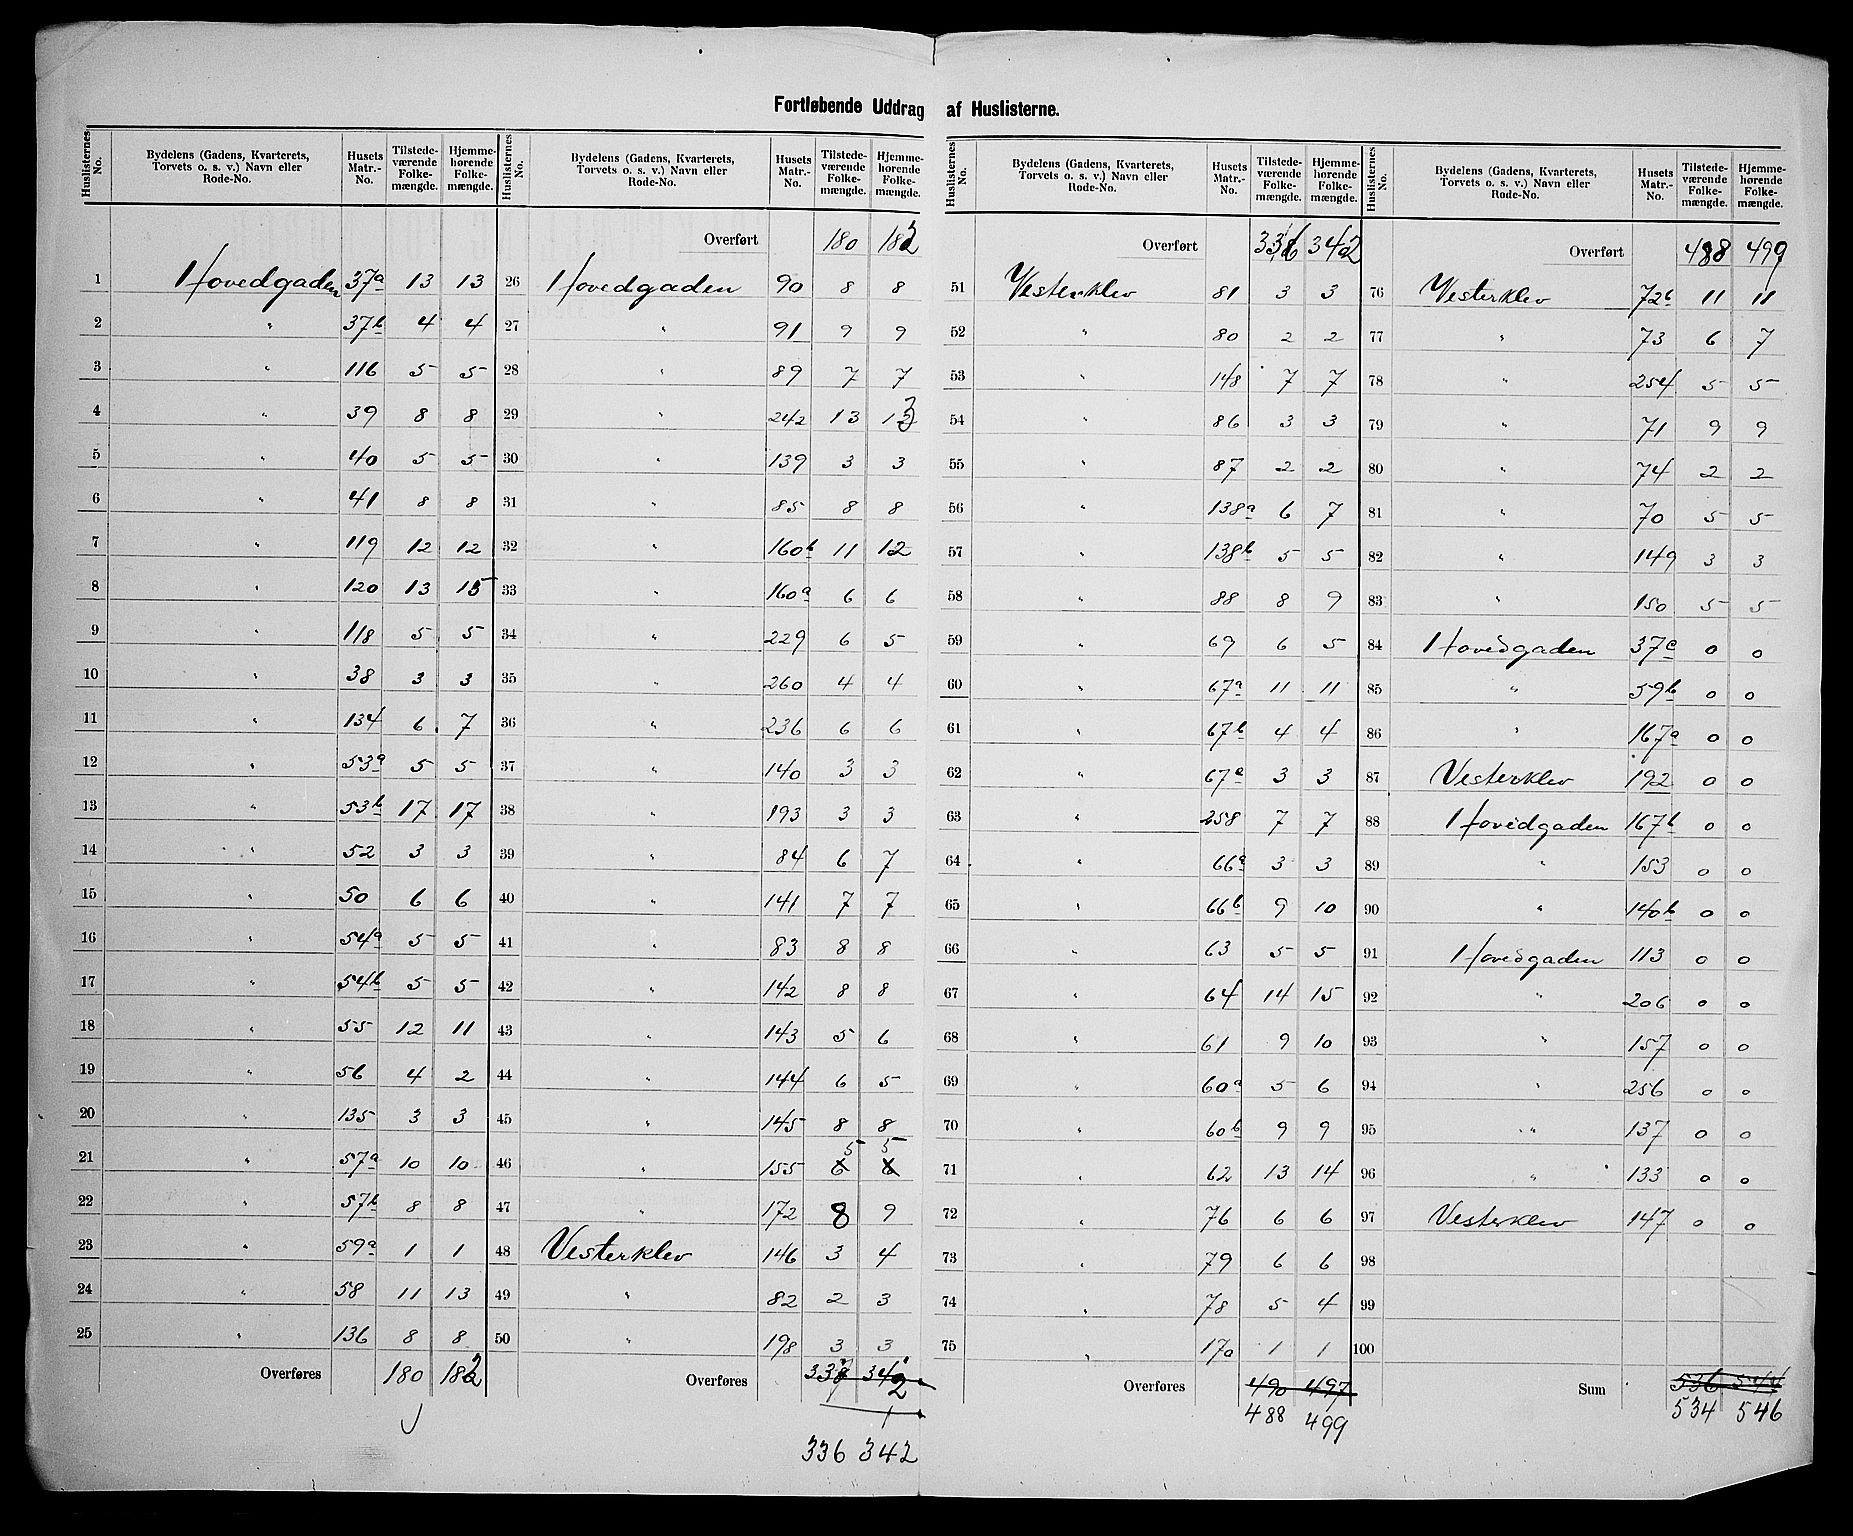 Fortløbende Uddrag af Huslisterne.
Huslisternes No. | Bydelens (Gadens, Kvarterets, Torvets o. s. v.) Navn eller Rode-No. | Husets Matr.-No. | Tilstede-værende Folke-mængde. | Hjemme-hørende Folke-mængde.
1 Hovedgaden 37a 13 13
2 " 37b 4 4
3 " 116 5 5
4 " 39 8 8
5 " 40 5 5
6 " 41 8 8
7 " 119 12 12
8 " 120 13 15
9 " 118 5 5
10 " 38 3 3
11 " 134 6 7
12 " 53a 5 5
13 " 53b 17 17
14 " 52 3 3
15 " 50 6 6
16 " 54a 5 5
17 " 54b 5 5
18 " 55 12 11
19 " 56 4 2
20 " 135 3 3
21 " 57a 10 10
22 " 57b 8 8
23 " 59a 1 1
24 " 58 11 13
25 " 136 8 8
Overføres 180 182
Huslisternes No. | Bydelens (Gadens, Kvarterets, Torvets o. s. v.) Navn eller Rode-No. | Husets Matr.-No. | Tilstede-værende Folke-mængde. | Hjemme-hørende Folke-mængde.
Overført 180 182
26 Hovedgaden 90 8 8
27 " 91 9 9
28 " 89 7 7
29 " 242 13 13
30 " 139 3 3
31 " 85 8 8
32 " 160b 11 12
33 " 160a 6 6
34 " 229 6 5
35 " 260 4 4
36 " 236 6 6
37 " 140 3 3
38 " 193 3 3
39 " 84 6 7
40 " 141 7 7
41 " 83 8 8
42 " 142 8 8
43 " 143 5 6
44 " 144 6 5
45 " 145 8 8
46 " 155 5 5
47 " 172 8 9
48 Vesterklev 146 3 4
49 " 82 2 3
50 " 198 3 3
Overføres
336 342
Huslisternes No. | Bydelens (Gadens, Kvarterets, Torvets o. s. v.) Navn eller Rode-No. | Husets Matr.-No. | Tilstede-værende Folke-mængde. | Hjemme-hørende Folke-mængde.
Overført 336 342
51 Vesterklev 81 3 3
52 " 80 2 2
53 " 148 7 7
54 " 86 3 3
55 " 87 2 2
56 " 138a 6 7
57 " 138b 5 5
58 " 88 8 9
59 " 69 6 5
60 " 67a 11 11
61 " 67b 4 4
62 " 67a 3 3
63 " 258 7 7
64 " 66a 3 3
65 " 66b 9 10
66 " 63 5 5
67 " 64 14 15
68 " 61 9 10
69 " 60a 5 6
70 " 60b 9 9
71 " 62 13 14
72 " 76 6 6
73 " 79 6 6
74 " 78 5 4
75 " 170 1 1
Overføres 490 497
488 499
Huslisternes No. | Bydelens (Gadens, Kvarterets, Torvets o. s. v.) Navn eller Rode-No. | Husets Matr.-No. | Tilstede-værende Folke-mængde. | Hjemme-hørende Folke-mængde.
Overført 488 499
76 Vesterklev 72b 11 11
77 " 73 6 7
78 " 254 5 5
79 " 71 9 9
80 " 74 2 2
81 " 70 5 5
82 " 149 3 3
83 " 150 5 5
84 Hovedgaden 37c 0 0
85 " 59b 0 0
86 " 167a 0 0
87 Vesterklev 192 0 0
88 Hovedgaden 167b 0 0
89 " 153 0 0
90 " 140b 0 0
91 Hovedgaden 113 0 0
92 " 206 0 0
93 " 157 0 0
94 " 256 0 0
95 " 137 0 0
96 " 133 0 0
97 Vesterklev 147 0 0
98
99
100
Sum 536 544
534 546